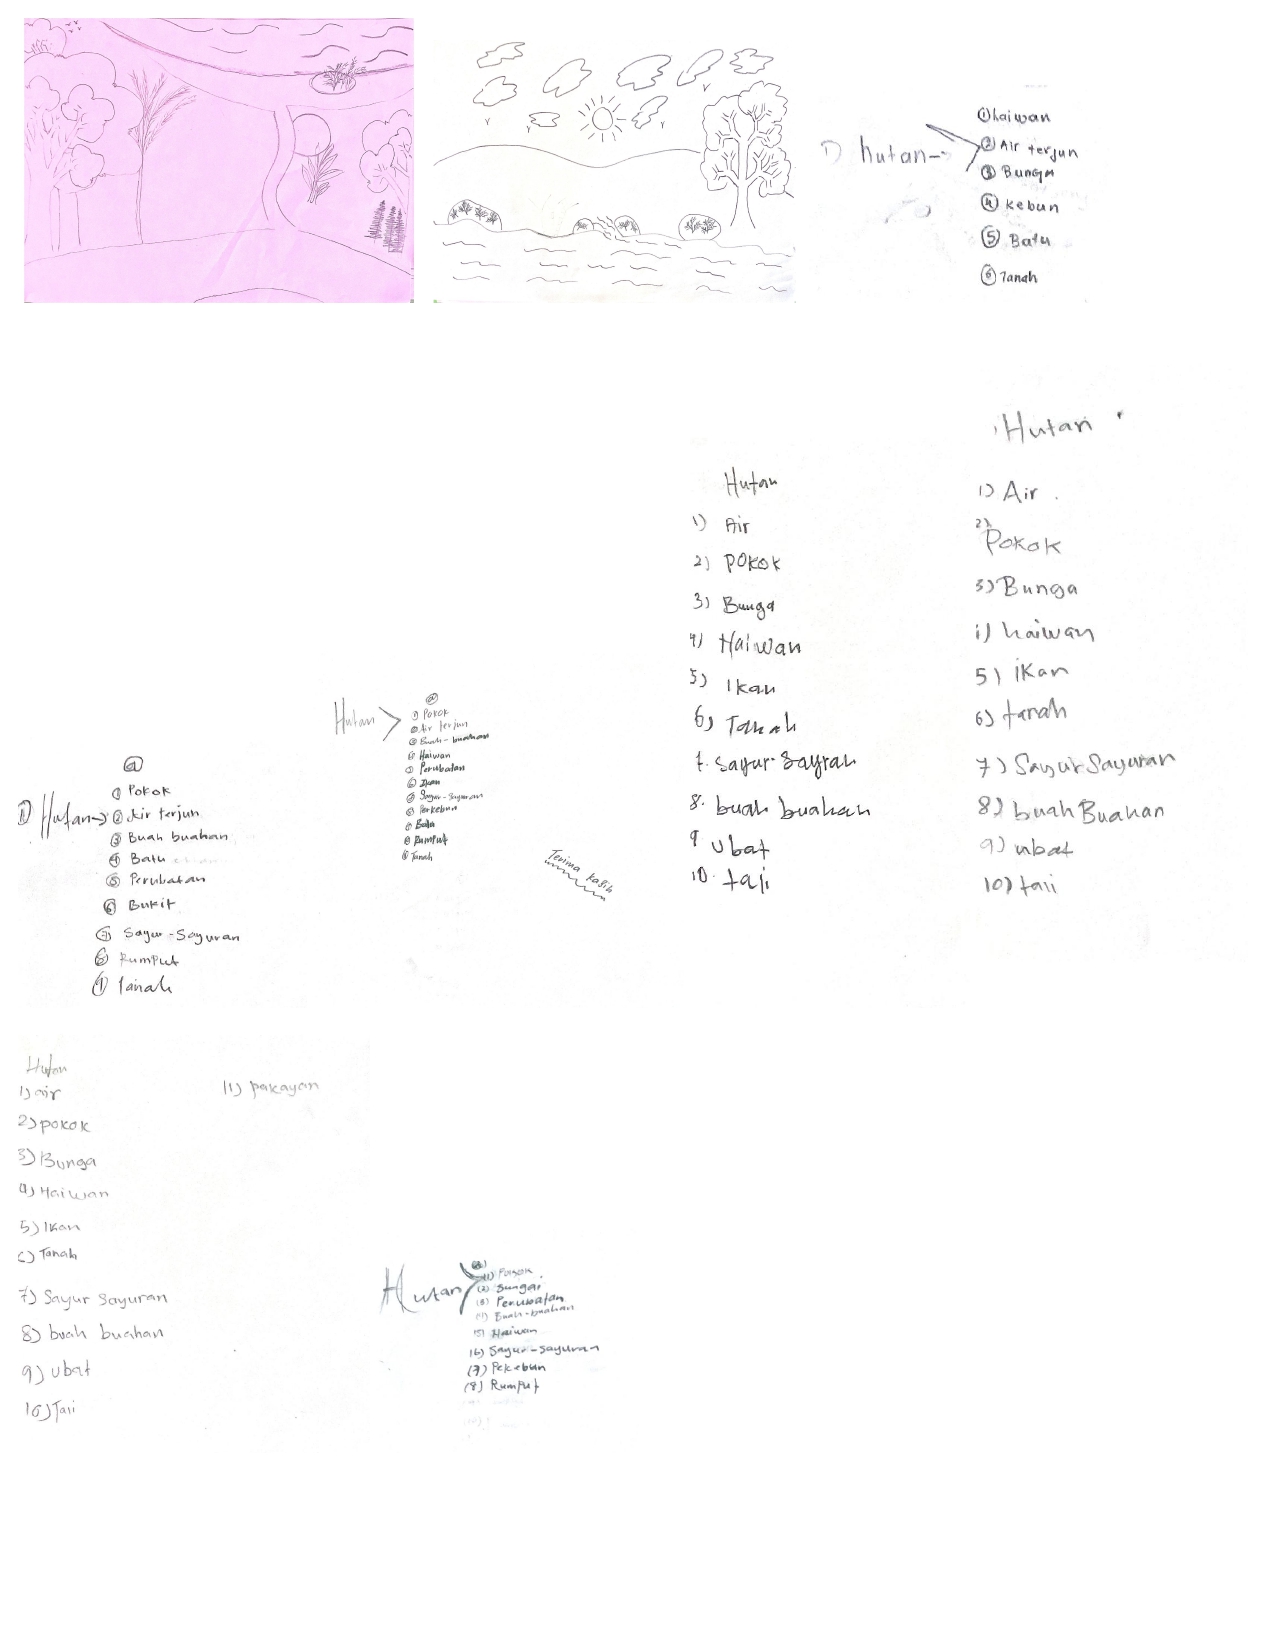 1) hutan →
① haiwan
② Air terjun
③ Bunga
④ Kebun
⑤ Batu
⑥ Tanah
Hutan
1) Air
2) POKOK
3) Bunga
4) Haiwan
5) Ikan
6) Tanah
7. Sayur-Sayran
8. buah buahan
9 Ubat
10. taji
Hutan
1) Air.
2) Pokok
3) Bunga
4) haiwan
5) iKan
6) tanah
7) Sayur Sayuran
8) buah Buahan
9) ubat
10) taji
Hutan >
@
① Pokok
② Air terjun
③ Buah-buahan
④ Haiwan
⑤ Perubatan
⑥ Ikan
⑦ Sayur-Sayuran
⑧ Perkebun
⑨ Batu
⑩ Rumput
⑪ Tanah
Terima kasih
1) Hutan →
@
① Pokok
② Air terjun
③ Buah buahan
④ Batu
⑤ Perubatan
⑥ Bukit
⑦ Sayur-Sayuran
⑧ Rumput
⑨ Tanah
Hutan
1) air
2) pokok
3) Bunga
4) Haiwan
5) Ikan
6) Tanah
7) Sayur Sayuran
8) buah buahan
9) ubat
10) Taji
11) pakayan
Hutan
@
(1) Pokok
(2) Sungai
(3) Perubatan
(4) Buah-buahan
(5) Haiwan
(6) Sayur-sayuran
(7) Pekebun
(8) Rumput